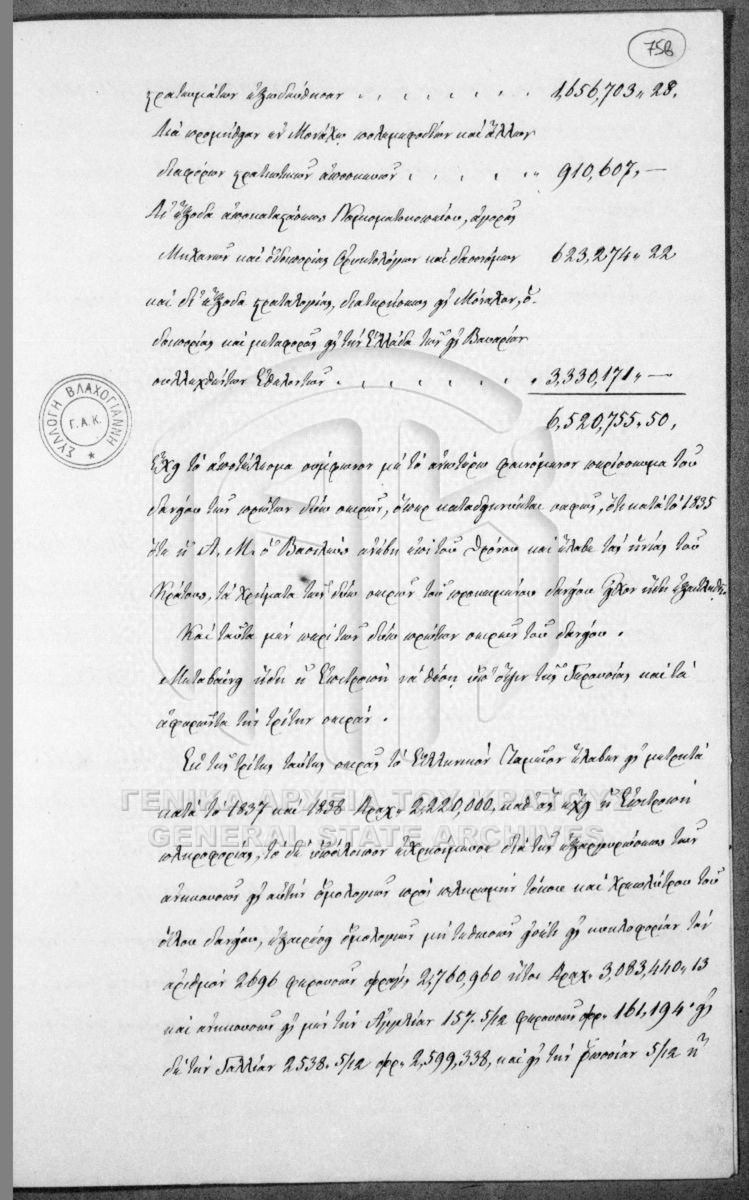 758
στρατευμάτων ἐξωδεύθησαν . . . . . . . 1,656,703„ 28.
Διὰ προμήθειαν ἐν Μονάχῳ πολεμεφοδίων καὶ ἄλλων
διαφόρων στρατιωτικῶν ἀποσκευῶν . . . . „ 910,607„ —
Δι' ἔξοδα ἀποκαταστάσεως Νομισματοκοπείου, ἀγορᾶς
Μηχανῶν καὶ ὁδοιπορίας Ὀρυκτολόγων καὶ δασονόμων 623,274„ 22
καὶ δι' ἔξοδα στρατολογίας, διατηρήσεως εἰς Μόναχον, ὁ-
δοιπορίας καὶ μεταφορᾶς εἰς τὴν Ἑλλάδα τῶν εἰς Βαυαρίαν
συλλεχθέντων Ἐθελοντῶν . . . . . . . „ 3,330,171„ —
6,520,755„ 50.
ἔχει τὸ ἀποτέλεσμα σύμφωνον μὲ τὸ ἀνωτέρω φαινόμενον περίσσευμα τοῦ
δανείου τῶν πρώτων δύω σειρῶν, ὅπερ καταδεικνύεται σαφῶς, ὅτι κατὰ τὸ 1835
ὅτε ἡ Α. Μ. ὁ Βασιλεὺς ἀνέβη ἐπὶ τοῦ θρόνου καὶ ἔλαβε τὰς ἡνίας τοῦ
Κράτους, τὰ χρήματα τῶν δύω σειρῶν τοῦ προκειμένου δανείου εἶχον ἤδη ἐξαντληθῆ.
Καὶ ταῦτα μὲν περὶ τῶν δύω πρώτων σειρῶν τοῦ δανείου.
Μεταβαίνει ἤδη ἡ Ἐπιτροπὴ νὰ θέσῃ ὑπ' ὄψιν τῆς Γερουσίας καὶ τὰ
ἀφορῶντα τὴν τρίτην σειράν.
Ἐκ τῆς τρίτης ταύτης σειρᾶς τὸ Ἑλληνικὸν Ταμεῖον ἔλαβεν εἰς μετρητὰ
κατὰ τὸ 1837 καὶ 1838 Δραχ„ 2,220,000, καθ' ἃς ἔχει ἡ Ἐπιτροπὴ
πληροφορίας, τὸ δὲ ὑπόλοιπον ἐχρησίμευσε διὰ τῆς ἐξαργυρώσεως τῶν
ἀνηκουσῶν εἰς αὐτὴν ὁμολογιῶν πρὸς πληρωμὴν τόκου καὶ χρεωλύτρου τοῦ
ὅλου δανείου, ἐξαιρέσει ὁμολογιῶν μὴ τεθεισῶν εἰσέτι εἰς κυκλοφορίαν τὸν
ἀριθμὸν 2696 φερουσῶν φράγ„ 2,760,960 ἤτοι Δραχ„ 3,083,440„ 13
καὶ ἀνηκουσῶν εἰς μὲν τὴν Ἀγγλίαν 157. 5/12 φερουσῶν φρ„ 161,194„ εἰς
δὲ τὴν Γαλλίαν 2538. 5/12 φρ„ 2,599,338, καὶ εἰς τὴν Ῥωσσίαν 5/12
ΣΥΛΛΟΓΗ ΒΛΑΧΟΓΙΑΝΝΗ
Γ.Α.Κ.
ΓΕΝΙΚΑ ΑΡΧΕΙΑ ΤΟΥ ΚΡΑΤΟΥΣ
GENERAL STATE ARCHIVES